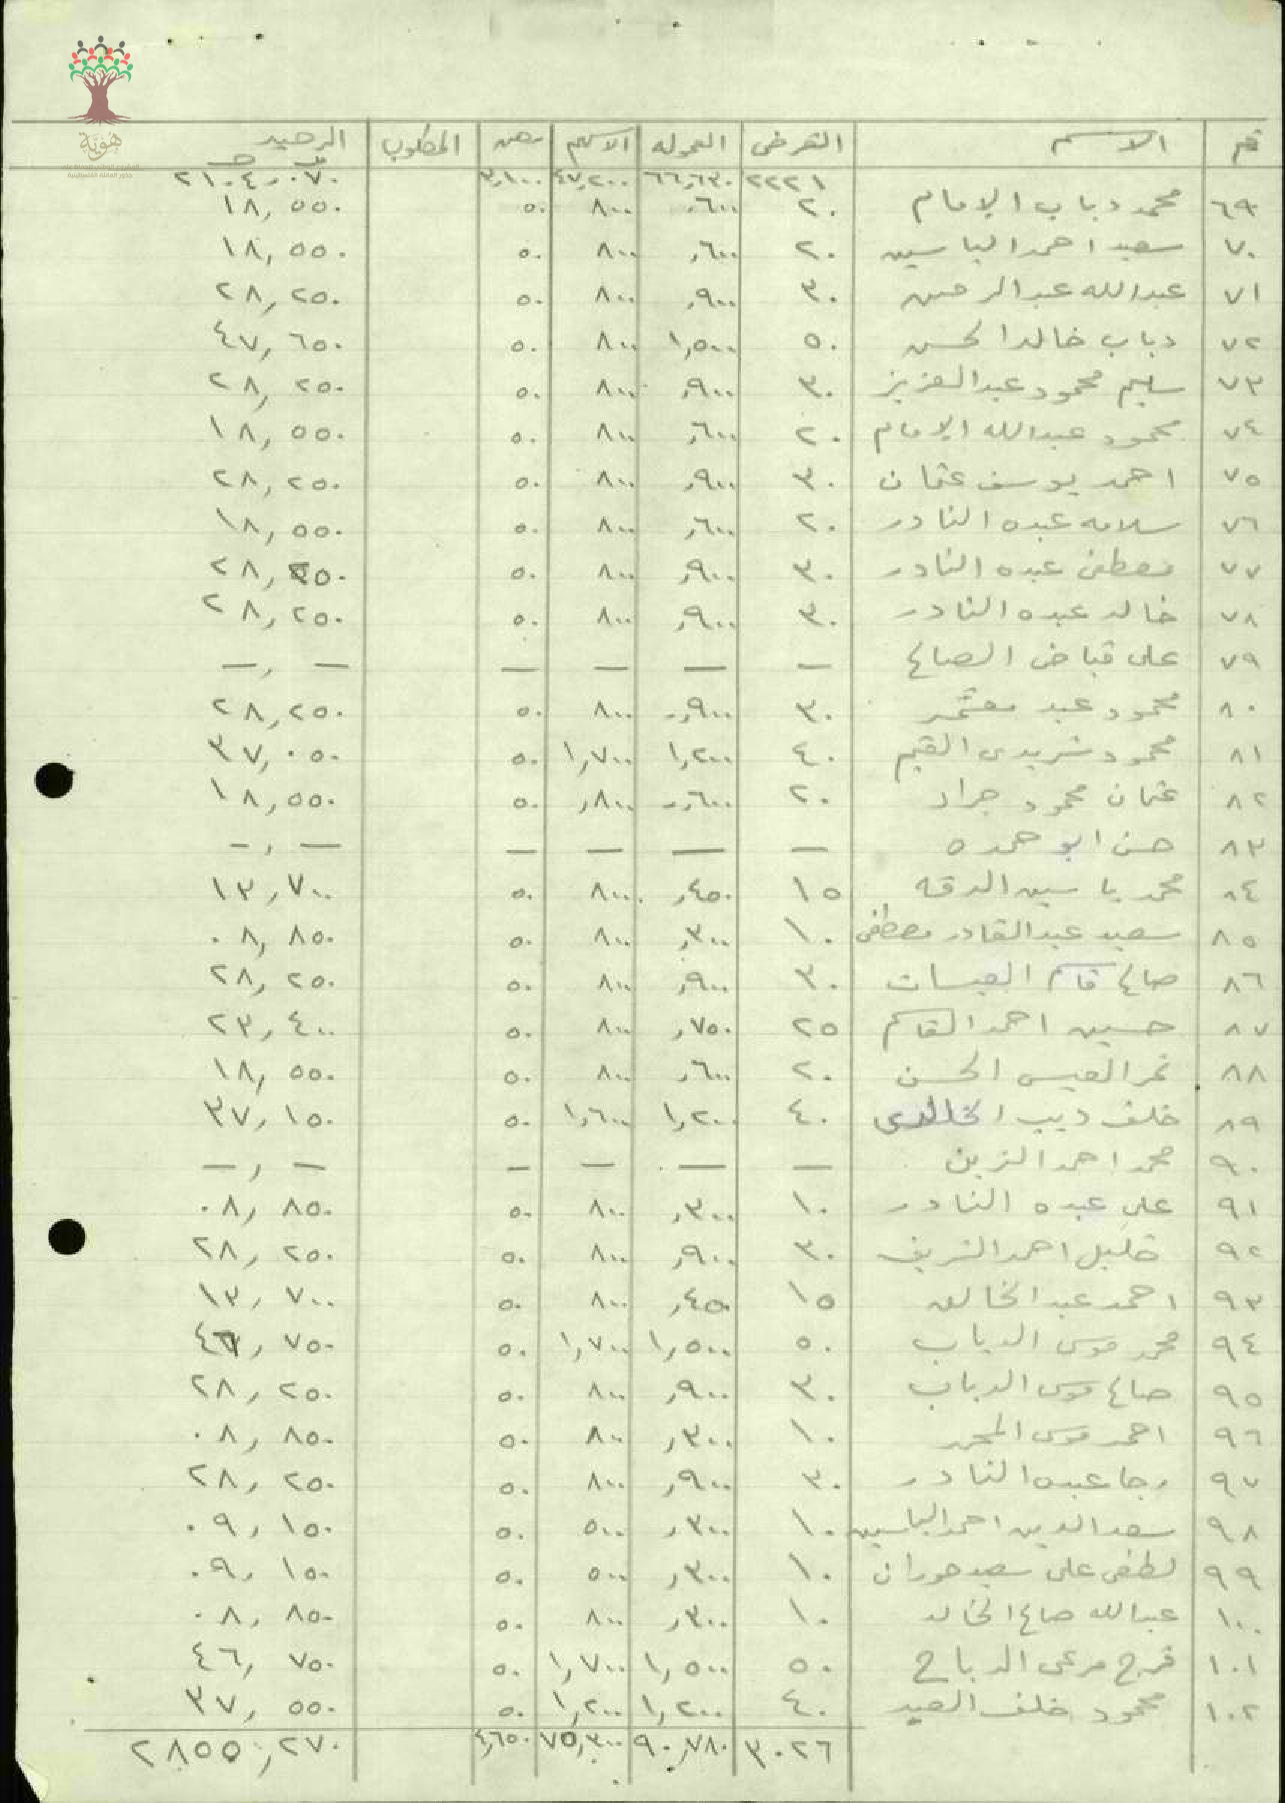 هوية
رقم الاسم القرض العموله الاسهم رهن المطلوب الرصيد
٢٢٢١ ٦٦,٦٣٠ ٤٧,٢٠٠ ٣,١٠٠ ٢١٠٤,٠٧٠
٦٩ محمد دباب الامام ٢٠ ,٦٠٠ ٨٠٠ ٥٠ ١٨,٥٥٠
٧٠ سعيد احمد الياسين ٢٠ ,٦٠٠ ٨٠٠ ٥٠ ١٨,٥٥٠
٧١ عبدالله عبدالرحمن ٣٠ ,٩٠٠ ٨٠٠ ٥٠ ٢٨,٢٥٠
٧٢ دباب خالد الحسن ٥٠ ١,٥٠٠ ٨٠٠ ٥٠ ٤٧,٦٥٠
٧٣ سليم محمود عبدالعزيز ٣٠ ,٩٠٠ ٨٠٠ ٥٠ ٢٨,٢٥٠
٧٤ محمود عبدالله الامام ٢٠ ,٦٠٠ ٨٠٠ ٥٠ ١٨,٥٥٠
٧٥ احمد يوسف عثمان ٣٠ ,٩٠٠ ٨٠٠ ٥٠ ٢٨,٢٥٠
٧٦ سلامه عبده النادر ٢٠ ,٦٠٠ ٨٠٠ ٥٠ ١٨,٥٥٠
٧٧ مصطفى عبده النادر ٣٠ ,٩٠٠ ٨٠٠ ٥٠ ٢٨,٢٥٠
٧٨ خالد عبده النادر ٣٠ ,٩٠٠ ٨٠٠ ٥٠ ٢٨,٢٥٠
٧٩ على قباض الصالح — — — — —,—
٨٠ محمود عبد معتمر ٣٠ ,٩٠٠ ٨٠٠ ٥٠ ٢٨,٢٥٠
٨١ محمود شريدى القيم ٤٠ ١,٢٠٠ ١,٧٠٠ ٥٠ ٣٧,٠٥٠
٨٢ عثمان محمود جراد ٢٠ ,٦٠٠ ,٨٠٠ ٥٠ ١٨,٥٥٠
٨٣ حسن ابو حمده — — — — —,—
٨٤ محمد ياسين الدقه ١٥ ,٤٥٠ ٨٠٠ ٥٠ ١٣,٧٠٠
٨٥ سعيد عبدالقادر مصطفى ١٠ ,٣٠٠ ٨٠٠ ٥٠ ٠٨,٨٥٠
٨٦ صالح قاسم العيسات ٣٠ ,٩٠٠ ٨٠٠ ٥٠ ٢٨,٢٥٠
٨٧ حسين احمد القاسم ٢٥ ,٧٥٠ ٨٠٠ ٥٠ ٢٣,٤٠٠
٨٨ نمر العيس الحسن ٢٠ ,٦٠٠ ٨٠٠ ٥٠ ١٨,٥٥٠
٨٩ خلف ديب الخالدى ٤٠ ١,٢٠٠ ١,٦٠٠ ٥٠ ٣٧,١٥٠
٩٠ محمد احمد الزبن — — — — —,—
٩١ على عبده النادر ١٠ ,٣٠٠ ٨٠٠ ٥٠ ٠٨,٨٥٠
٩٢ خليل احمد الشريف ٣٠ ,٩٠٠ ٨٠٠ ٥٠ ٢٨,٢٥٠
٩٣ احمد عبد الخالق ١٥ ,٤٥٠ ٨٠٠ ٥٠ ١٣,٧٠٠
٩٤ محمد موسى الدباب ٥٠ ١,٥٠٠ ١,٧٠٠ ٥٠ ٤٦,٧٥٠
٩٥ صالح موسى الدباب ٣٠ ,٩٠٠ ٨٠٠ ٥٠ ٢٨,٢٥٠
٩٦ احمد موسى المحمد ١٠ ,٣٠٠ ٨٠٠ ٥٠ ٠٨,٨٥٠
٩٧ رجا عبده النادر ٣٠ ,٩٠٠ ٨٠٠ ٥٠ ٢٨,٢٥٠
٩٨ سعد الدين احمد الياسين ١٠ ,٣٠٠ ٥٠٠ ٥٠ ٠٩,١٥٠
٩٩ لطفى على سعيد حوران ١٠ ,٣٠٠ ٥٠٠ ٥٠ ٠٩,١٥٠
١٠٠ عبدالله صالح الخالد ١٠ ,٣٠٠ ٨٠٠ ٥٠ ٠٨,٨٥٠
١٠١ فرج مرعى الدباح ٥٠ ١,٥٠٠ ١,٧٠٠ ٥٠ ٤٦,٧٥٠
١٠٢ محمود خلف العيد ٤٠ ١,٢٠٠ ١,٢٠٠ ٥٠ ٣٧,٥٥٠
٣٠٢٦ ٩٠,٧٨٠ ٧٥,٣٠٠ ٤,٦٥٠ ٢٨٥٥,٢٧٠